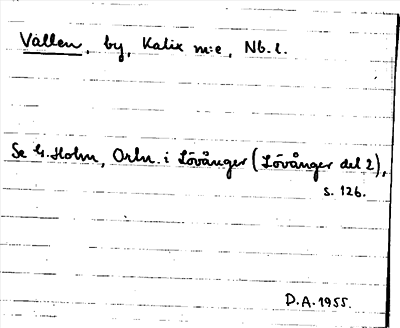 Vallen, by, Kalix m:e, Nb. l.
Se G. Holm, Ortn. i Lövånger (Lövånger del 2),
s. 126.
D.A. 1955.